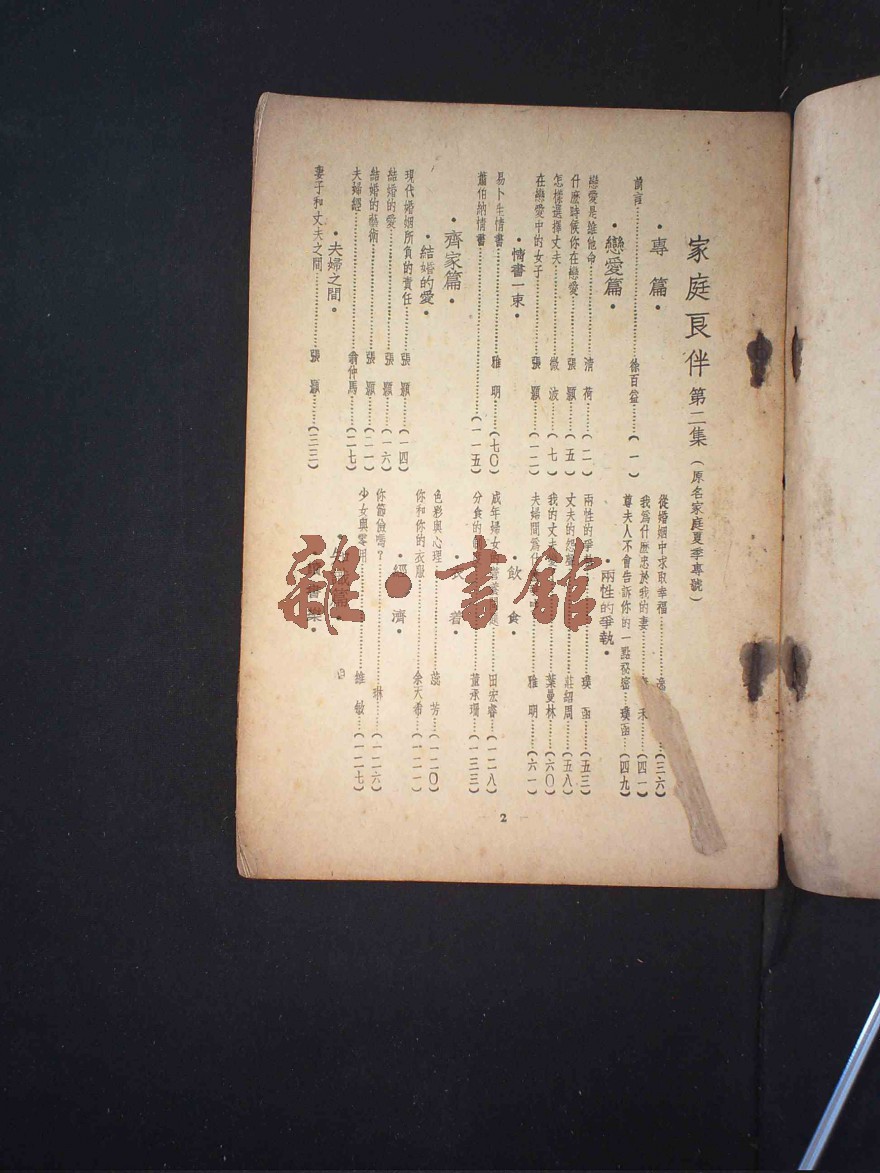 家庭良伴 第二集 (原名家庭夏季專號)
·專篇·
前言…………徐百益……(一)
·戀愛篇·
戀愛是誰他命…………清荷……(二)
什麽時候你在戀愛…………張顥……(五)
怎樣選擇丈夫…………微波……(七)
在戀愛中的女子…………張顥……(一二)
·情書一束·
易卜生情書…………雅明……(七〇)
蕭伯納情書…………(一一五)
·齊家篇·
·結婚的愛·
現代婚姻所負的責任…………張顥……(一四)
結婚的愛…………張顥……(一六)
結婚的藝術…………張顥……(二一)
夫婦經…………俞仲馬……(二七)
·夫婦之間·
妻子和丈夫之間…………張顥……(三三)
從婚姻中求取幸福…………(三六)
我爲什麽忠於我的妻…………禾……(四一)
尊夫人不會告訴你的一點秘密……璞函……(四九)
·兩性的爭執·
兩性的爭…………璞函……(五三)
丈夫的怨…………莊紹周……(五八)
我的丈夫…………葉曼林……(六〇)
夫婦間爲什…………雅明……(六一)
·飲食·
成年婦女的營養…………田宏睿……(一二八)
分食的…………董承珊……(一三三)
·衣着·
色彩與心理…………蕊芳……(一二〇)
你和你的衣服…………余天希……(一二一)
·經濟·
你節儉嗎?…………琳……(一二六)
少女與零用…………維敏……(一二七)
2
雜·書館